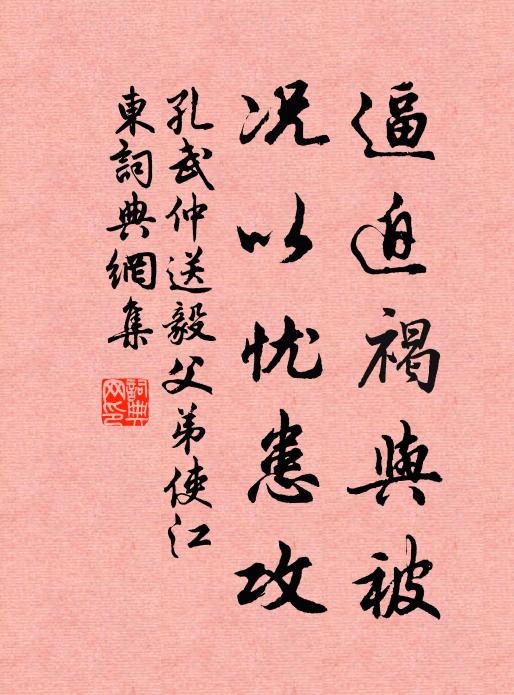 逼迫褐與被
况以忧患攻
孔武仲送毅父弟使江
東詞典網集
詞典网印